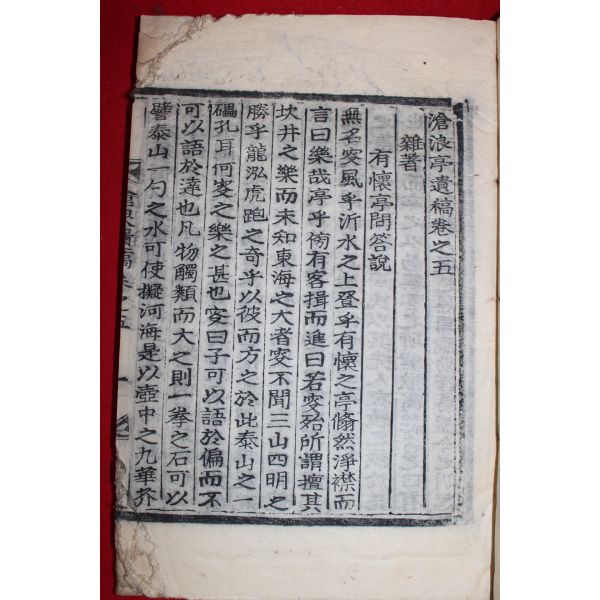 滄浪亭遺稿卷之五
雜著
有懷亭問答說
無名叟風乎沂水之上登乎有懷之亭翛然淨襟而
言曰樂哉亭乎俯有客揖而進曰若叟殆所謂擅其
坎井之樂而未知東海之大者叟不聞三山四明之
勝乎龍泓虎跑之奇乎以彼而方之於此泰山之一
礨孔耳何叟之樂之甚也叟曰子可以語於偏而不
可以語於達也凡物觸類而大之則一拳之石可以
譬泰山一勺之水可使擬河海是以壺中之九華芥
遺稿
五
一